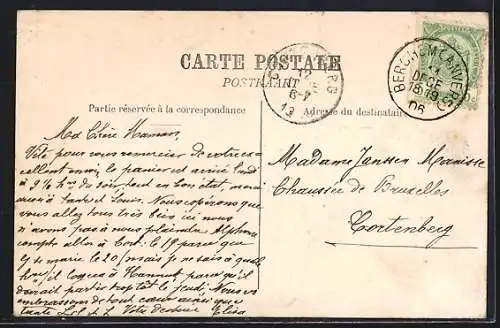 CARTE POSTALE
POSTKAART
Partie réservée à la correspondance
Adresse du destinataire
BERCHEM (ANVERS)
DECE
18-19
06
12
6-7
13
Ma Chère Maman,
Vite pour vous remercier de votre ex-
cellent envoi, le panier est arrivé lundi
à 9½ hrs du soir, tout en bon état, merci
aussi à tante et Louis. Nous espérons que
vous allez tous très bien ici nous
n'avons pas à nous plaindre. Alphonse
compte aller à Cort. le 19 parce que
se marie le 20, mais je ne sais à quelle
il à Hannut parce qu'il
devrait partir trop tôt le jeudi. Nous vous
embrassons de tout cœur ainsi que
tante L. et L. Votre Elisa
Madame Janssen
Chaussée de Bruxelles
Cortenberg